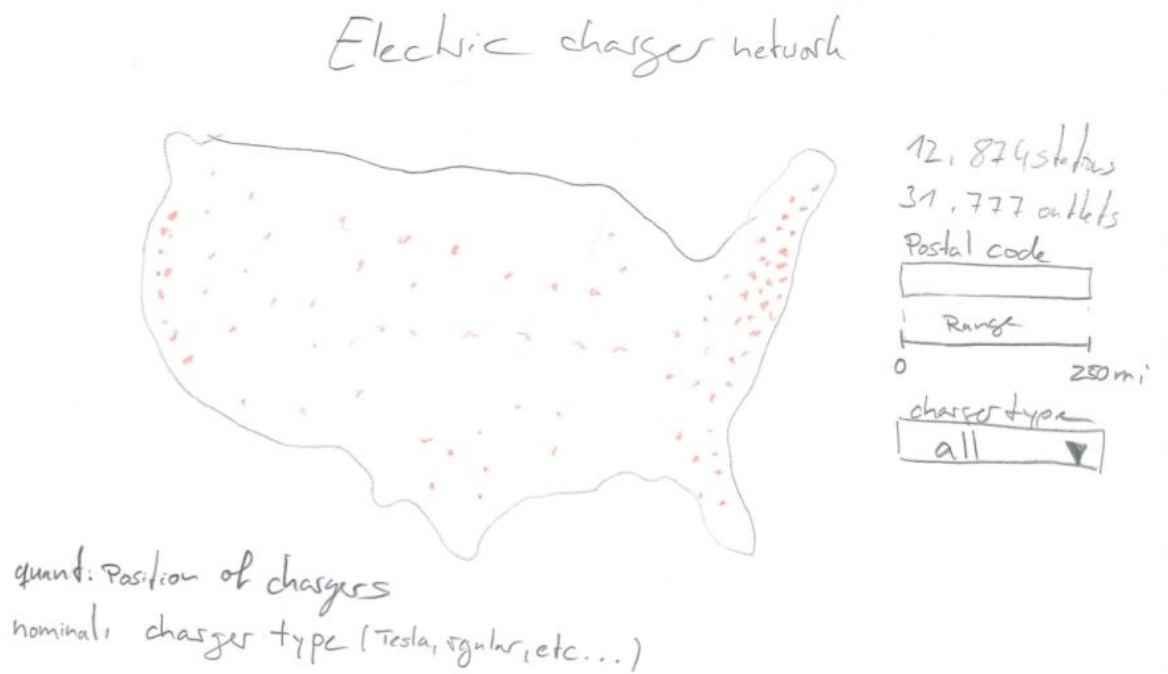 Electric charger network
12,874 stations
31,777 outlets
Postal code
Range
0 250 mi
charger type
all
quant: Position of chargers
nominal: charger type (Tesla, rgular, etc...)